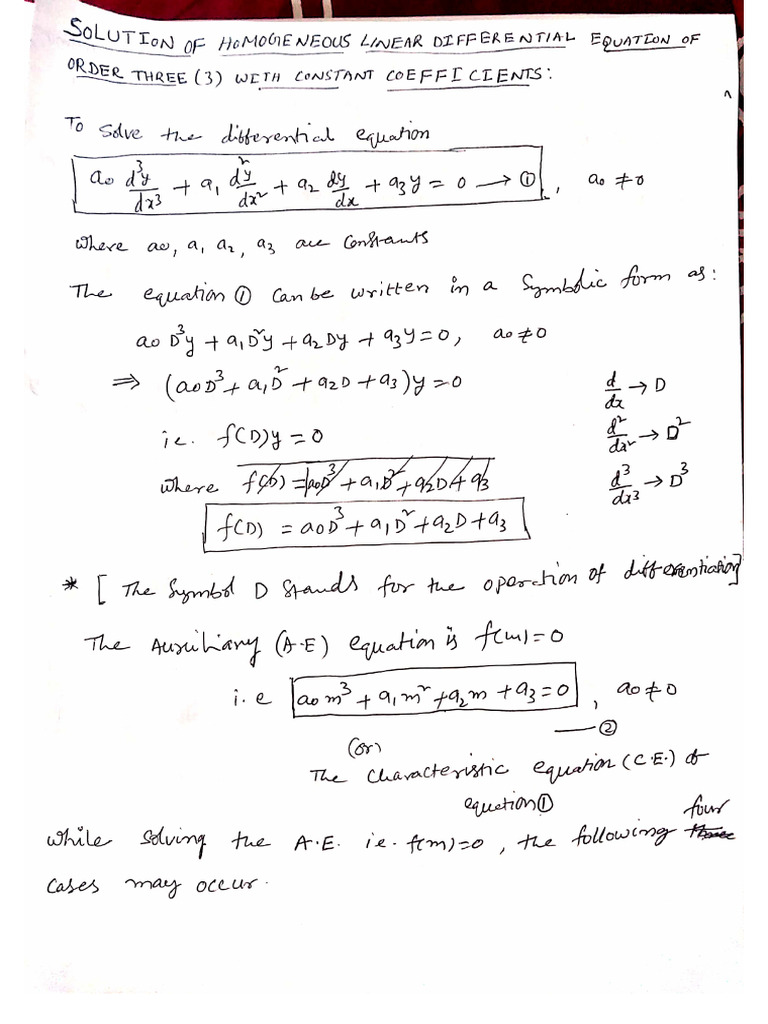 SOLUTION OF HOMOGENEOUS LINEAR DIFFERENTIAL EQUATION OF
ORDER THREE (3) WITH CONSTANT COEFFICIENTS:
To solve the differential equation
a₀ d³y/dx³ + a₁ d²y/dx² + a₂ dy/dx + a₃y = 0 → ①, a₀ ≠ 0
where a₀, a₁, a₂, a₃ are constants
The equation ① can be written in a symbolic form as:
a₀D³y + a₁D²y + a₂Dy + a₃y = 0, a₀ ≠ 0
⇒ (a₀D³ + a₁D² + a₂D + a₃)y = 0
d/dx → D
ie. f(D)y = 0
d²/dx² → D²
where f(D) = a₀D³ + a₁D² + a₂D + a₃
d³/dx³ → D³
f(D) = a₀D³ + a₁D² + a₂D + a₃
* [ The Symbol D stands for the operation of differentiation]
The Auxiliary (A.E) equation is f(m) = 0
i.e a₀m³ + a₁m² + a₂m + a₃ = 0, a₀ ≠ 0
— ②
(or)
The characteristic equation (C.E.) of
equation ①
four
while solving the A.E. ie. f(m) = 0, the following three
cases may occur.